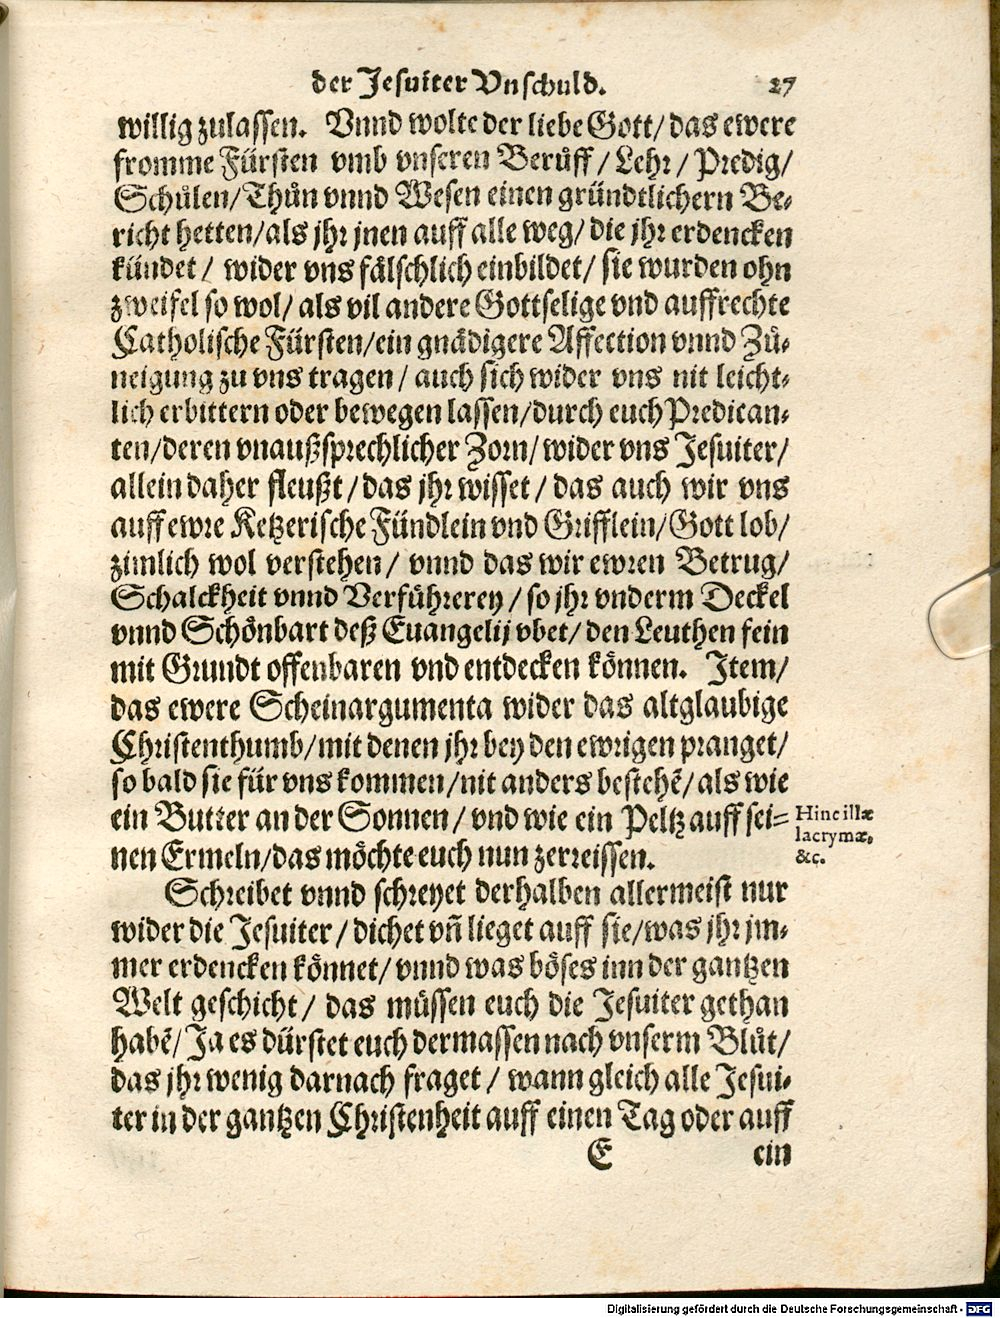 der Jesuiter Vnschuld. 27
willig zulassen. Vnnd wolte der liebe Gott/ das ewere
fromme Fürsten vmb vnseren Berůff/ Lehr/ Predig/
Schůlen/ Thůn vnnd Wesen einen gründtlichern Be-
richt hetten/ als jhr jnen auff alle weg/ die jhr erdencken
kündet/ wider vns fälschlich einbildet/ sie wurden ohn
zweifel so wol/ als vil andere Gottselige vnd auffrechte
Catholische Fürsten/ ein gnädigere Affection vnnd Zů-
neigung zu vns tragen/ auch sich wider vns nit leicht-
lich erbittern oder bewegen lassen/ durch euch Predican-
ten/ deren vnaußsprechlicher Zorn/ wider vns Jesuiter/
allein daher fleußt/ das jhr wisset/ das auch wir vns
auff ewre Ketzerische Fündlein vnd Grifflein/ Gott lob/
zimlich wol verstehen/ vnnd das wir ewren Betrug/
Schalckheit vnnd Verführerey/ so jhr vnderm Deckel
vnnd Schönbart deß Euangelij vbet/ den Leuthen fein
mit Grundt offenbaren vnd entdecken können. Item/
das ewere Scheinargumenta wider das altglaubige
Christenthumb/ mit denen jhr bey den ewrigen pranget/
so bald sie für vns kommen/ nit anders bestehẽ/ als wie
ein Butter an der Sonnen/ vnd wie ein Peltz auff sei-
nen Ermeln/ das möchte euch nun zerreissen.
Hinc illæ
lacrymæ,
&c.
Schreibet vnnd schreyet derhalben allermeist nur
wider die Jesuiter/ dichet vñ lieget auff sie/ was jhr jm-
mer erdencken könnet/ vnnd was böses inn der gantzen
Welt geschicht/ das müssen euch die Jesuiter gethan
habẽ/ Ja es dürstet euch dermassen nach vnserm Blůt/
das jhr wenig darnach fraget/ wann gleich alle Jesui-
ter in der gantzen Christenheit auff einen Tag oder auff
E ein
Digitalisierung gefördert durch die Deutsche Forschungsgemeinschaft - DFG